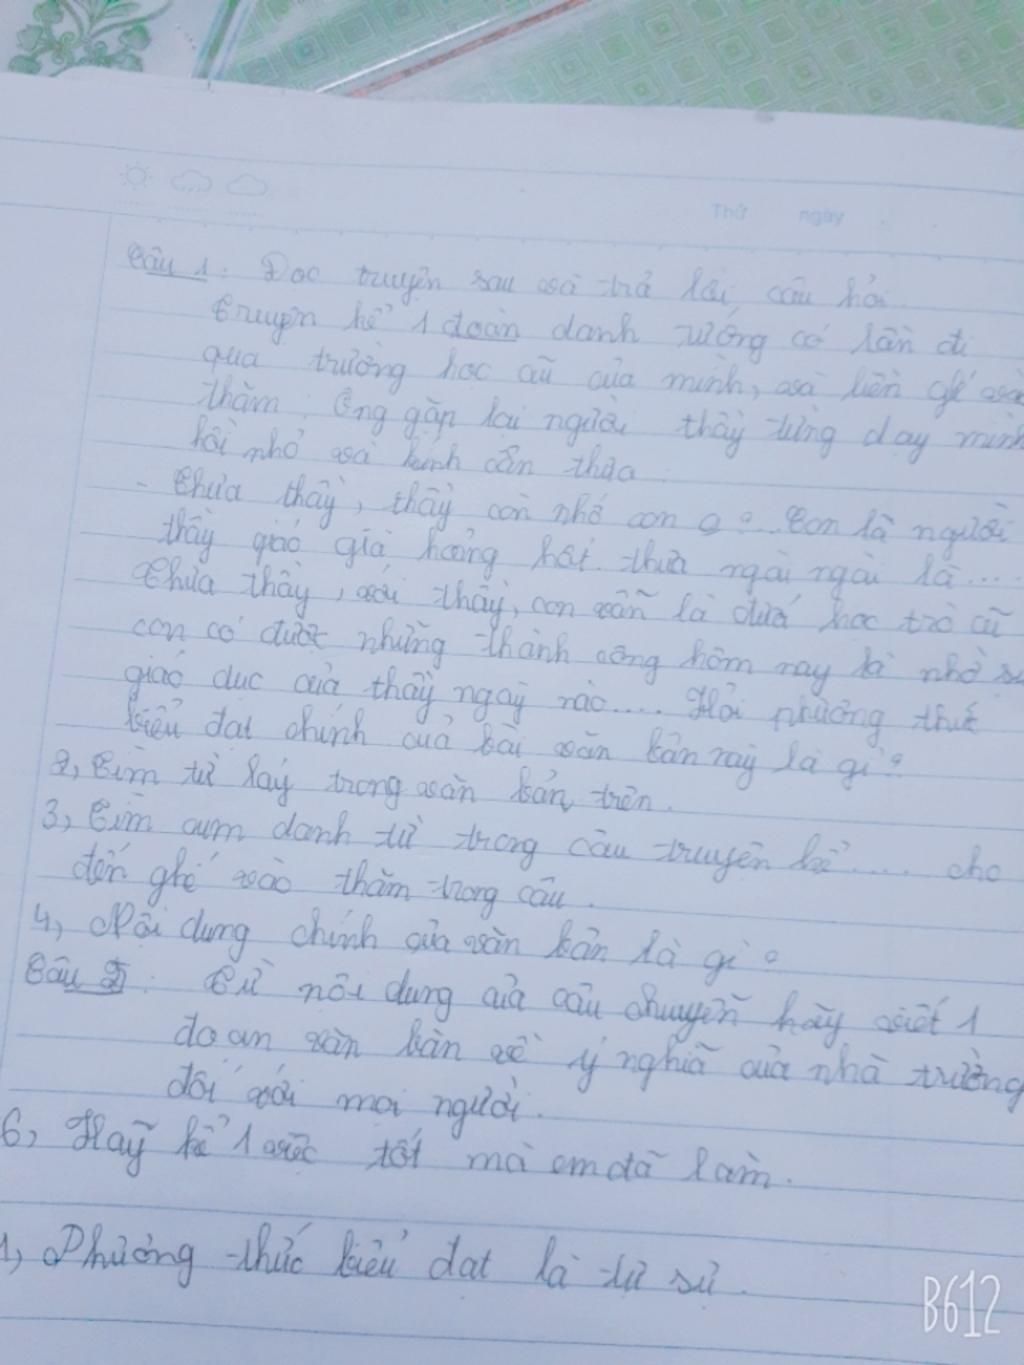 Thứ ngày
Câu 1: Đọc truyện sau và trả lời câu hỏi.
Truyện kể 1 đoàn danh tướng có lần đi
qua trường học cũ của mình, và liền ghé
thăm. Ông gặp lại người thầy từng dạy mình
hồi nhỏ và kính cẩn thưa.
- Thưa thầy, thầy còn nhớ con ạ? Con là người
thầy giáo già hoảng hốt. thưa ngài ngài là....
Thưa thầy, với thầy, con vẫn là đứa học trò cũ
con có được những thành công hôm nay là nhờ
giáo dục của thầy ngày nào.... Hỏi phương thức
biểu đạt chính của bài văn bản này là gì?
2, Tìm từ láy trong văn bản trên.
3, Tìm cụm danh từ trong câu truyện kể.... cho
đến ghé vào thăm trong câu.
4, Nội dung chính của văn bản là gì?
Câu 5: Từ nội dung của câu chuyện hãy viết 1
đoạn văn bản về ý nghĩa của nhà trường
đối với mọi người.
6, Hãy kể 1 việc tốt mà em đã làm.
1, Phương thức biểu đạt là tự sự.
B612